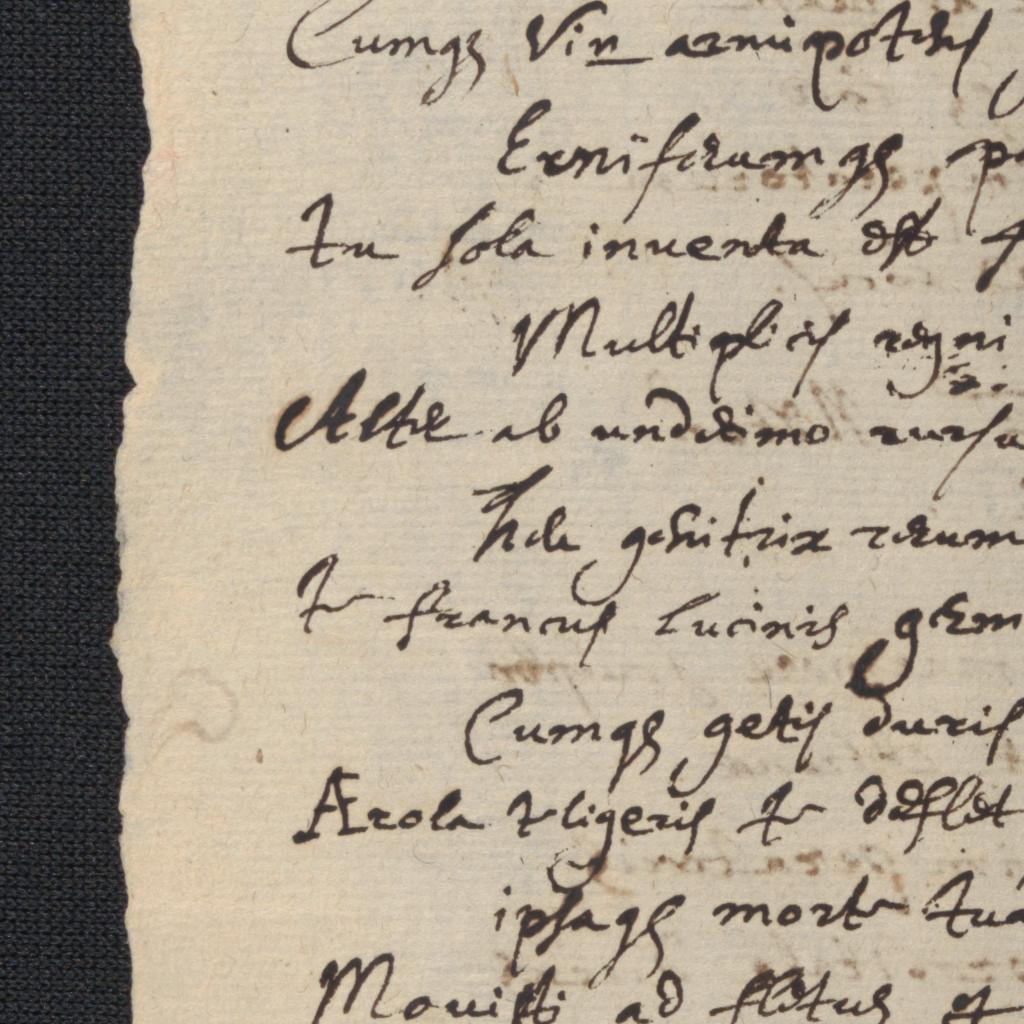 Cumqz Vin armipotens
Exniferumqz
tu sola inuenta est
Multiplicis regni
Alter ab undecimo
genitrix rerum
te francus Lucinis gem
Cumqz getis duris
Ærola te ligeris te deflet
ipsaqz morte tua
Mouisti ad fletus et